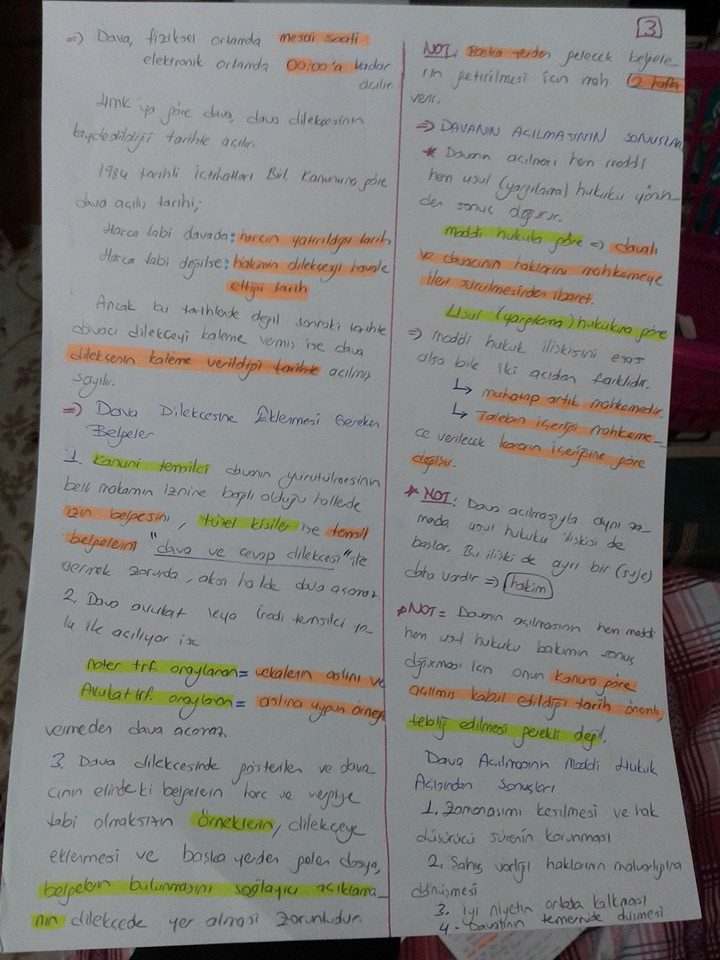 3
=) Dava, fiziksel ortamda mesai saati
elektronik ortamda 00:00'a kadar
açılır.
HMK'ya göre dava, dava dilekçesinin
kaydedildiği tarihte açılır.
1984 tarihli İçtihatları Birl. Kanununa göre
dava açılış tarihi;
Harca tabi davada: harcın yatırıldığı tarih
Harca tabi değilse: hakimin dilekçeyi havale
ettiği tarih
Ancak bu tarihlerde değil sonraki tarihte
davacı dilekçeyi kaleme vermiş ise dava
dilekçenin kaleme verildiği tarihte açılmış
sayılır.
=) Dava Dilekçesine Eklenmesi Gereken
Belgeler
1. Kanuni temsilci davanın yürütülmesinin
belli makamın iznine bağlı olduğu hallerde
izin belgesini, tüzel kişiler ise temsil
belgelerini "dava ve cevap dilekçesi" ile
vermek zorunda, aksi halde dava açamaz.
2. Dava avukat veya iradi temsilci yo-
lu ile açılıyor ise
Noter trf. onaylanan = vekaletin aslını ve
Avukat trf. onaylanan = aslına uygun örneği
vermeden dava açamaz.
3. Dava dilekçesinde gösterilen ve dava-
cının elindeki belgelerin harc ve vergiye
tabi olmaksızın örneklerin, dilekçeye
eklenmesi ve başka yerden gelen dosya,
belgelerin bulunmasını sağlayıcı açıklama-
nın dilekçede yer alması zorunludur.
NOT: Başka yerden gelecek belgele-
rin getirilmesi için mah. 2 hafta
verir.
=) DAVANIN AÇILMASININ SONUÇLARI
* Davanın açılması hem maddi
hem usul (yargılama) hukuku yönün-
den sonuç doğurur.
Maddi hukuka göre => davalı
ve davacının haklarını mahkemeye
ileri sürülmesinden ibaret.
Usul (yargılama) hukukuna göre
=> maddi hukuk ilişkisini esas
alsa bile iki açıdan farklıdır.
↳ muhatap artık mahkemedir.
↳ Talebin içeriği mahkeme-
ce verilecek kararın içeriğine göre
değişir.
* NOT: Dava açılmasıyla aynı za-
manda usul hukuku ilişkisi de
başlar. Bu ilişki de ayrı bir (süje)
daha vardır => hakim
* NOT = Davanın açılmasının hem maddi
hem usul hukuku bakımın sonuç
doğurması için onun kanuna göre
açılmış kabul edildiği tarih önemli,
tebliğ edilmesi gerekli değil.
Dava Açılmasının Maddi Hukuk
Açısından Sonuçları
1. Zamanaşımı kesilmesi ve hak
düşürücü sürenin korunması
2. Şahıs varlığı haklarının malvarlığına
dönüşmesi
3. İyi niyetin ortadan kalkması
4- Davalının temerrüde düşmesi